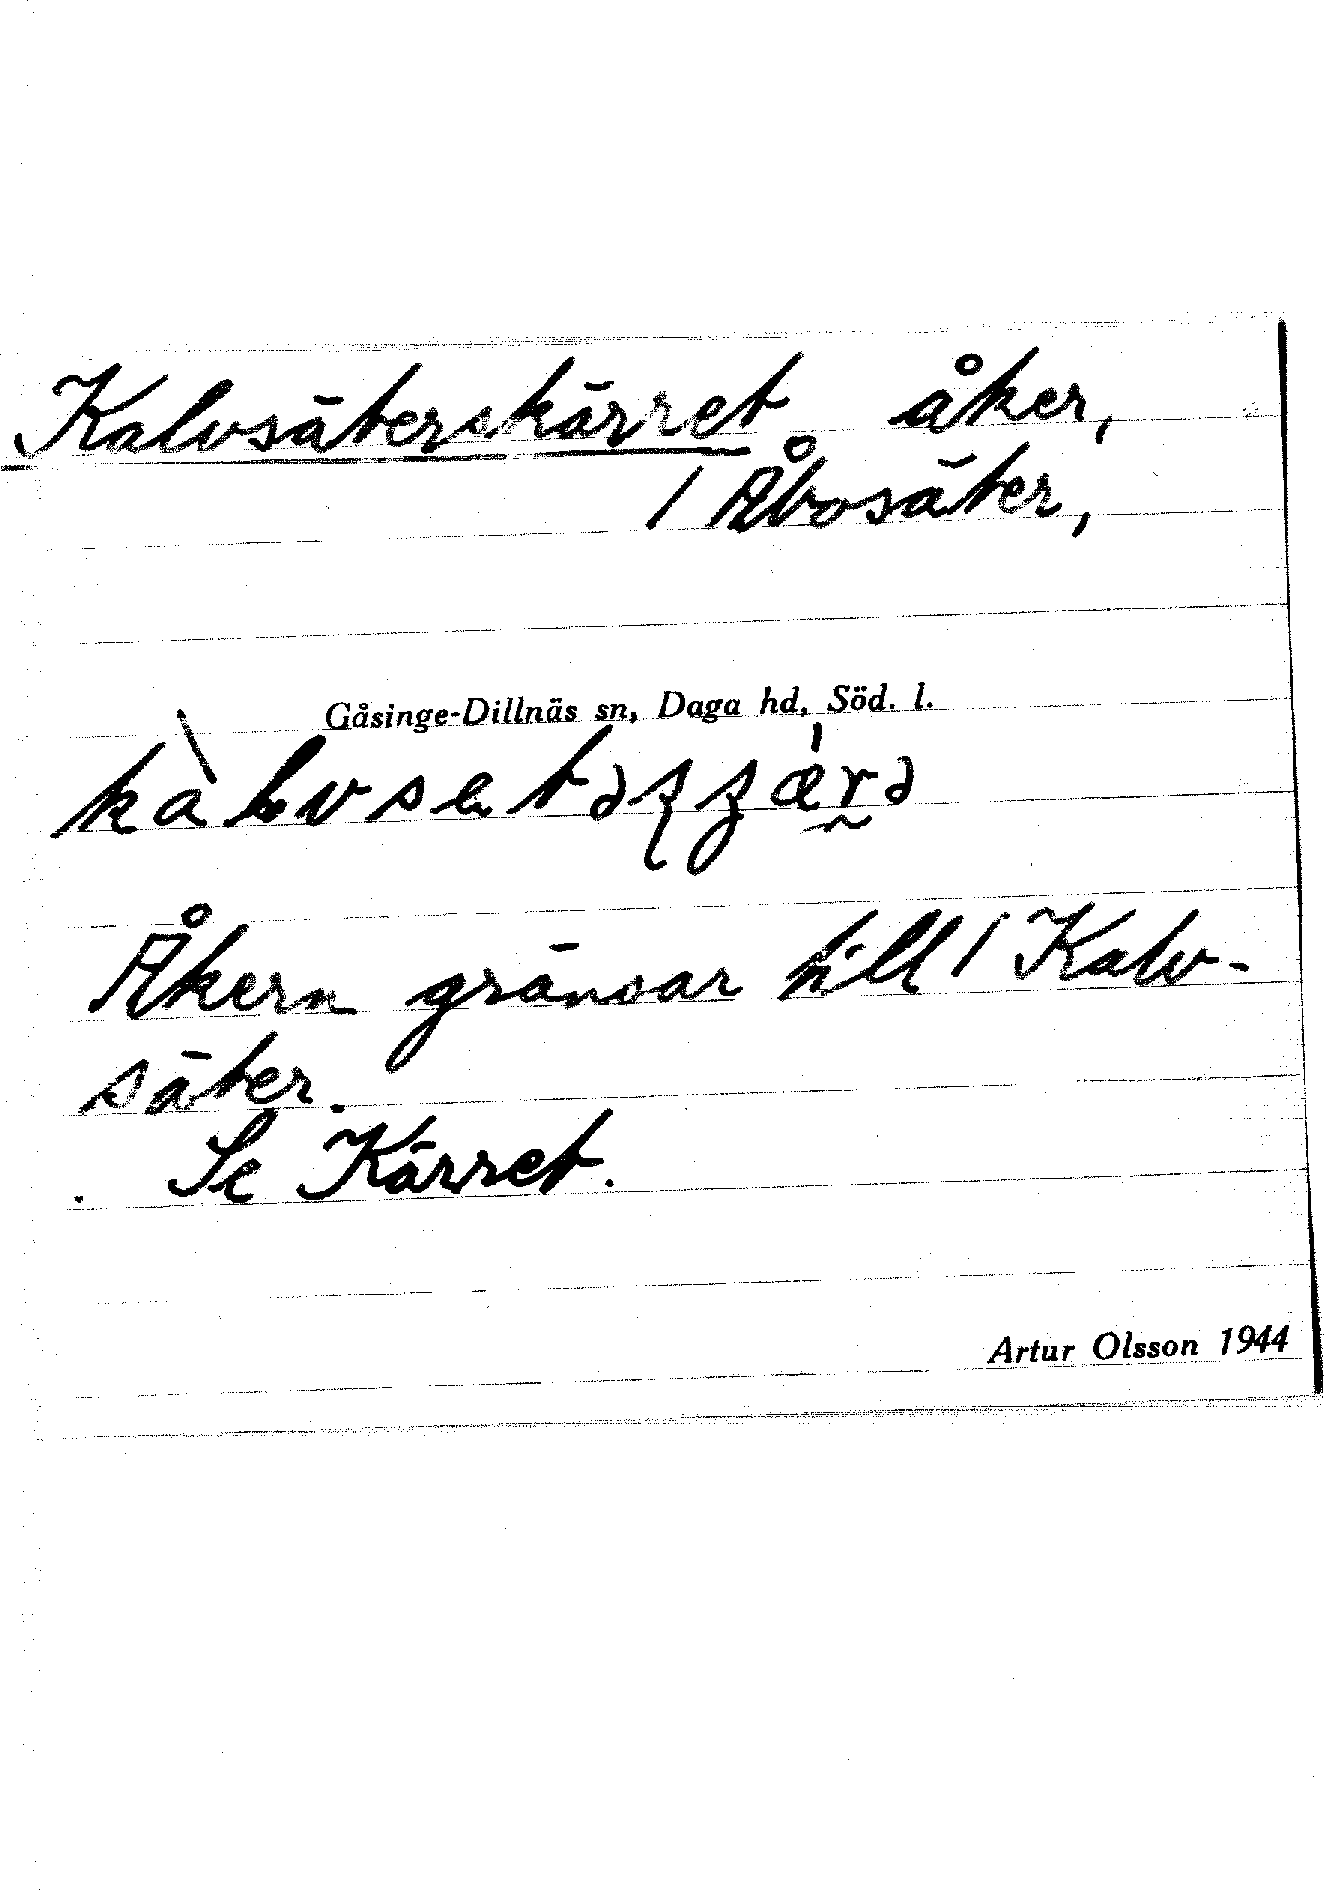 Kalvsäterskärret åker,
/ Åbosäter,
Gåsinge-Dillnäs sn, Daga hd, Söd. l.
Åkern gränsar till / Kalv-
säter.
Se Kärret.
Artur Olsson 1944